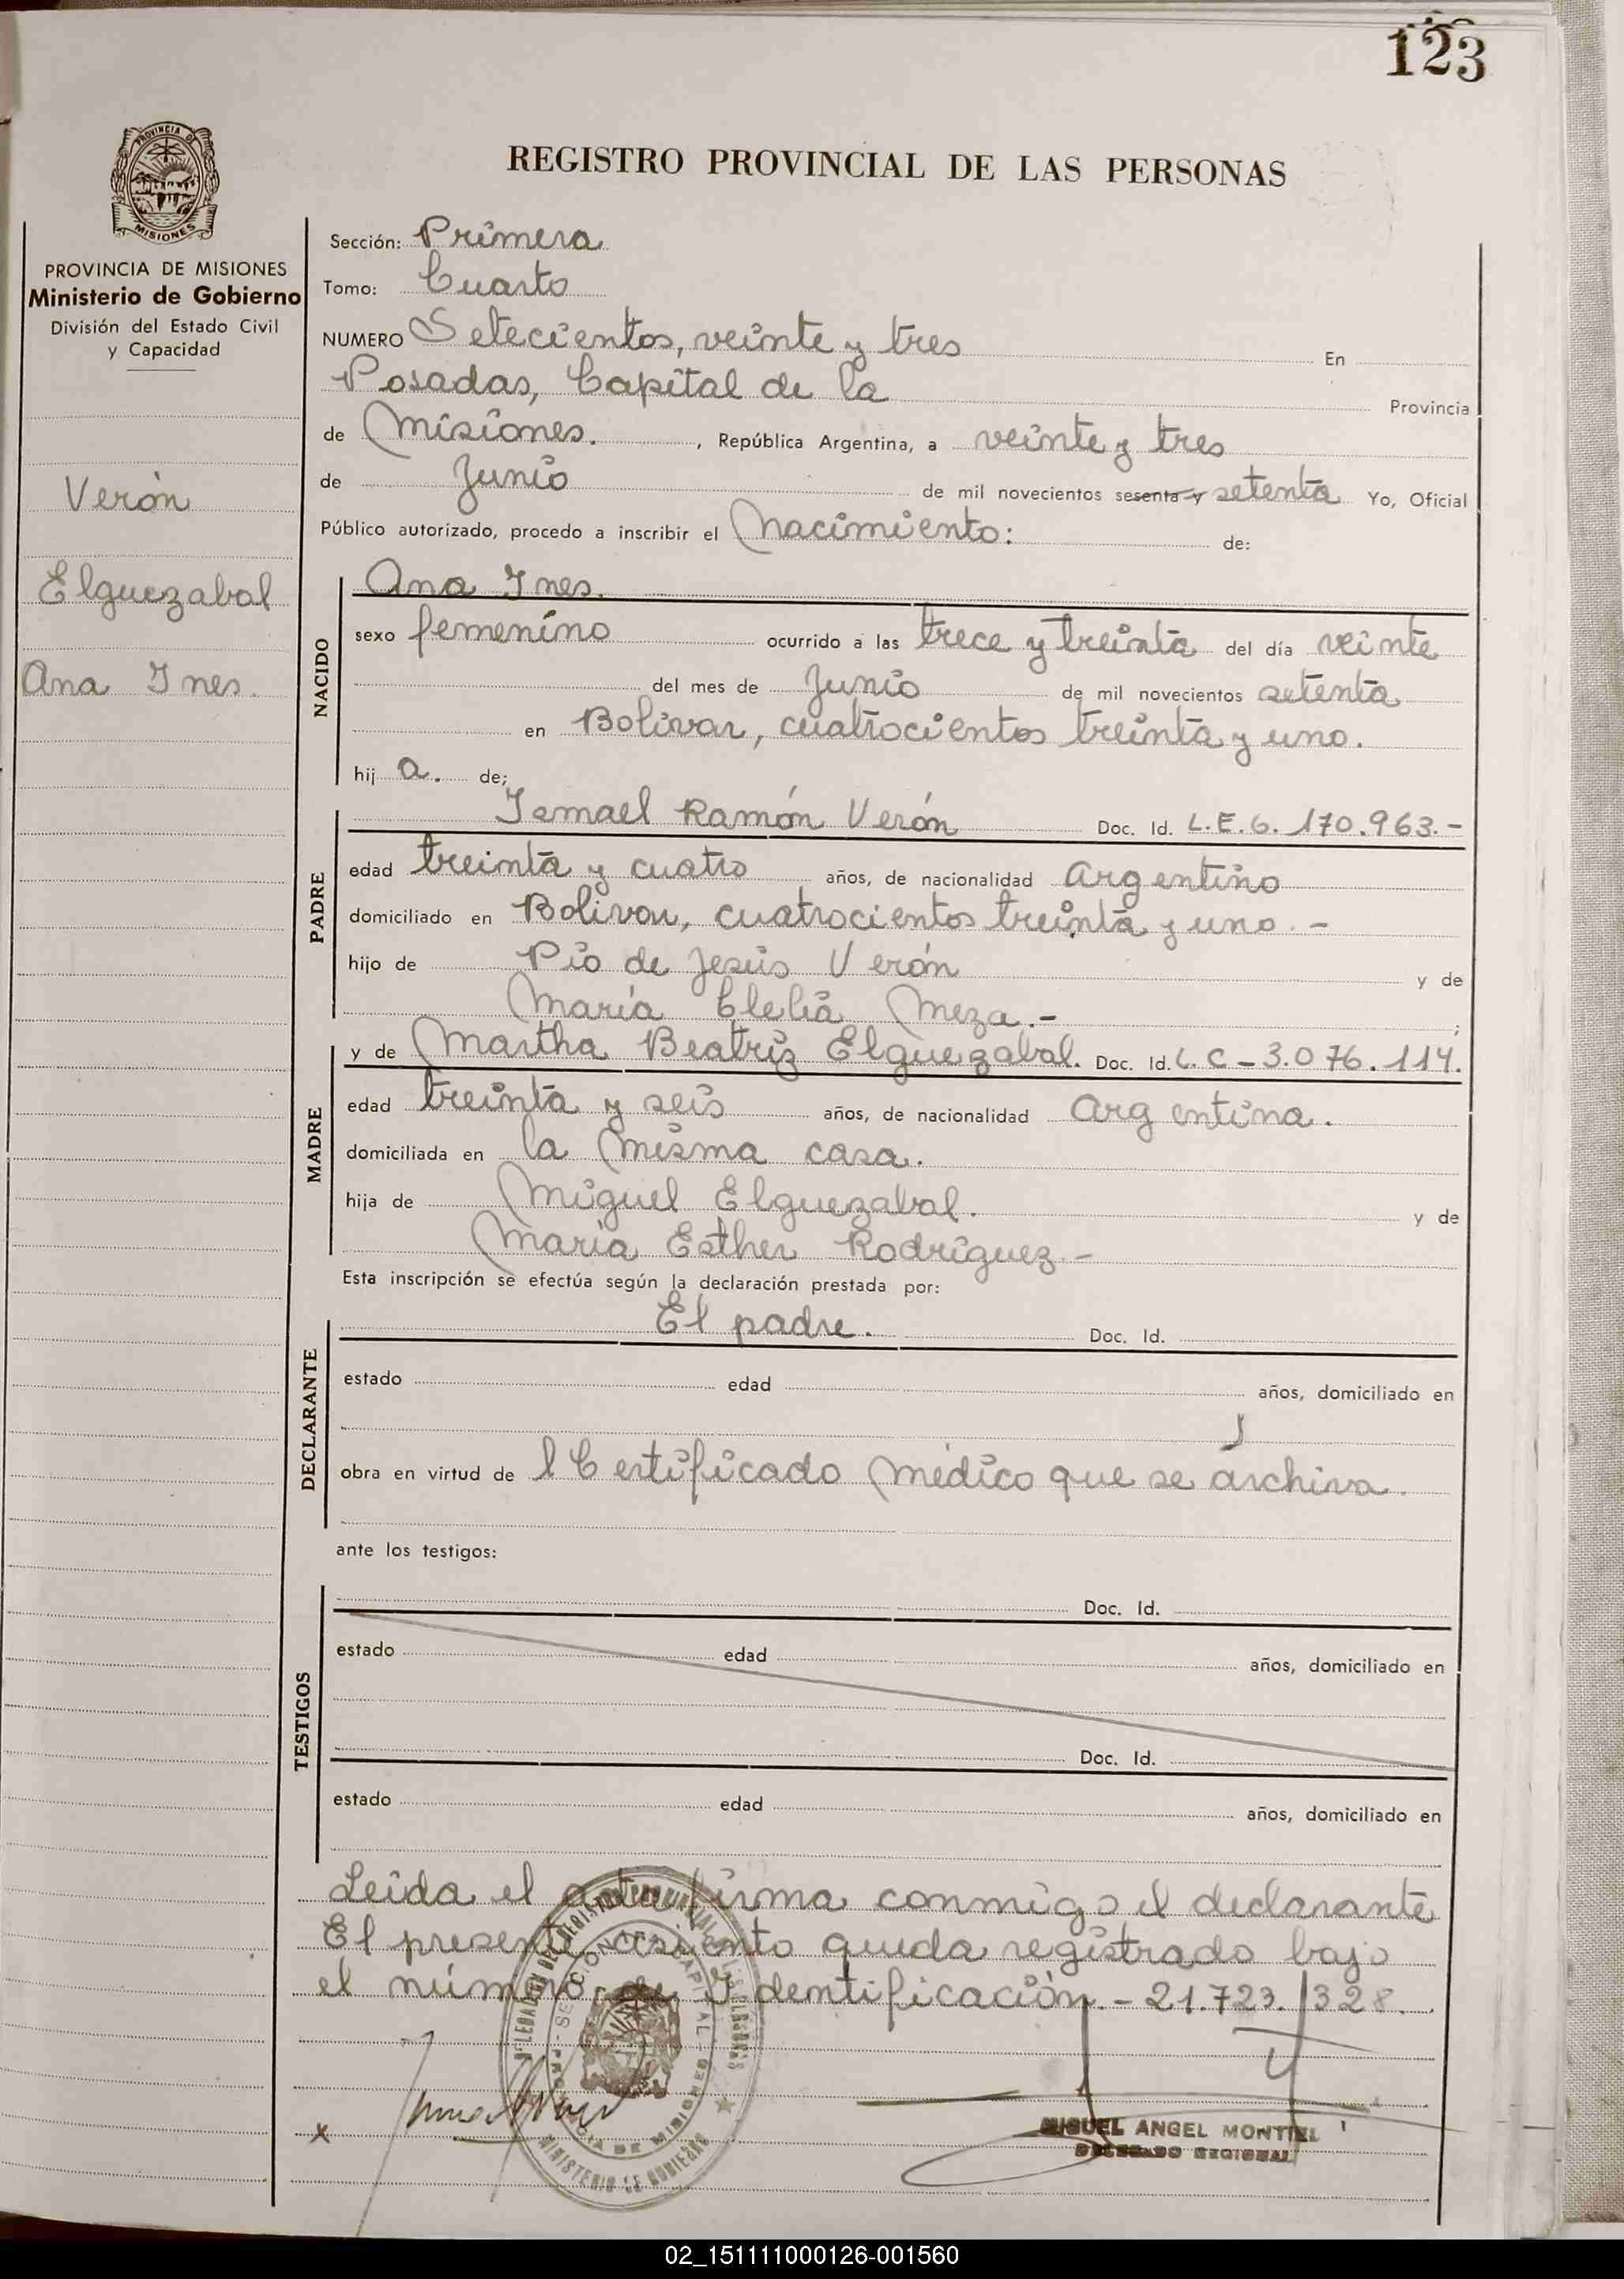 123
PROVINCIA DE MISIONES
REGISTRO PROVINCIAL DE LAS PERSONAS
PROVINCIA DE MISIONES
Ministerio de Gobierno
División del Estado Civil
y Capacidad
Verón
Elguezabal
Ana Ines.
Sección: Primera
Tomo: Cuarto
NUMERO Setecientos, veinte y tres En
Posadas, Capital de la Provincia
de Misiones. , República Argentina, a veinte y tres
de Junio de mil novecientos sesenta y setenta Yo, Oficial
Público autorizado, procedo a inscribir el Nacimiento: de:
NACIDO
Ana Ines.
sexo femenino ocurrido a las trece y treinta del día veinte
del mes de Junio de mil novecientos setenta
en Bolivar, cuatrocientos treinta y uno.
hij a. de;
PADRE
Ismael Ramón Verón Doc. Id. L.E.6.170.963.-
edad treinta y cuatro años, de nacionalidad Argentino
domiciliado en Bolivar, cuatrocientos treinta y uno.-
hijo de Pío de Jesús Verón y de
María Clelia Meza.- ;
MADRE
y de Martha Beatriz Elguezabal. Doc. Id. L.C-3.076.114.
edad treinta y seis años, de nacionalidad Argentina.
domiciliada en la misma casa.
hija de Miguel Elguezabal. y de
María Esther Rodríguez.-
Esta inscripción se efectúa según la declaración prestada por:
DECLARANTE
El padre. Doc. Id.
estado edad años, domiciliado en
obra en virtud de l Certificado médico que se archiva.
ante los testigos:
TESTIGOS
Doc. Id.
estado edad años, domiciliado en
Doc. Id.
estado edad años, domiciliado en
Leída el acta firma conmigo el declarante
El presente asiento queda registrado bajo
el número de Identificación.- 21.723.328.
x
SECCION CAPITAL
PROVINCIA DE MISIONES
MINISTERIO DE GOBIERNO
MIGUEL ANGEL MONTIEL
DELEGADO REGIONAL
02_151111000126-001560